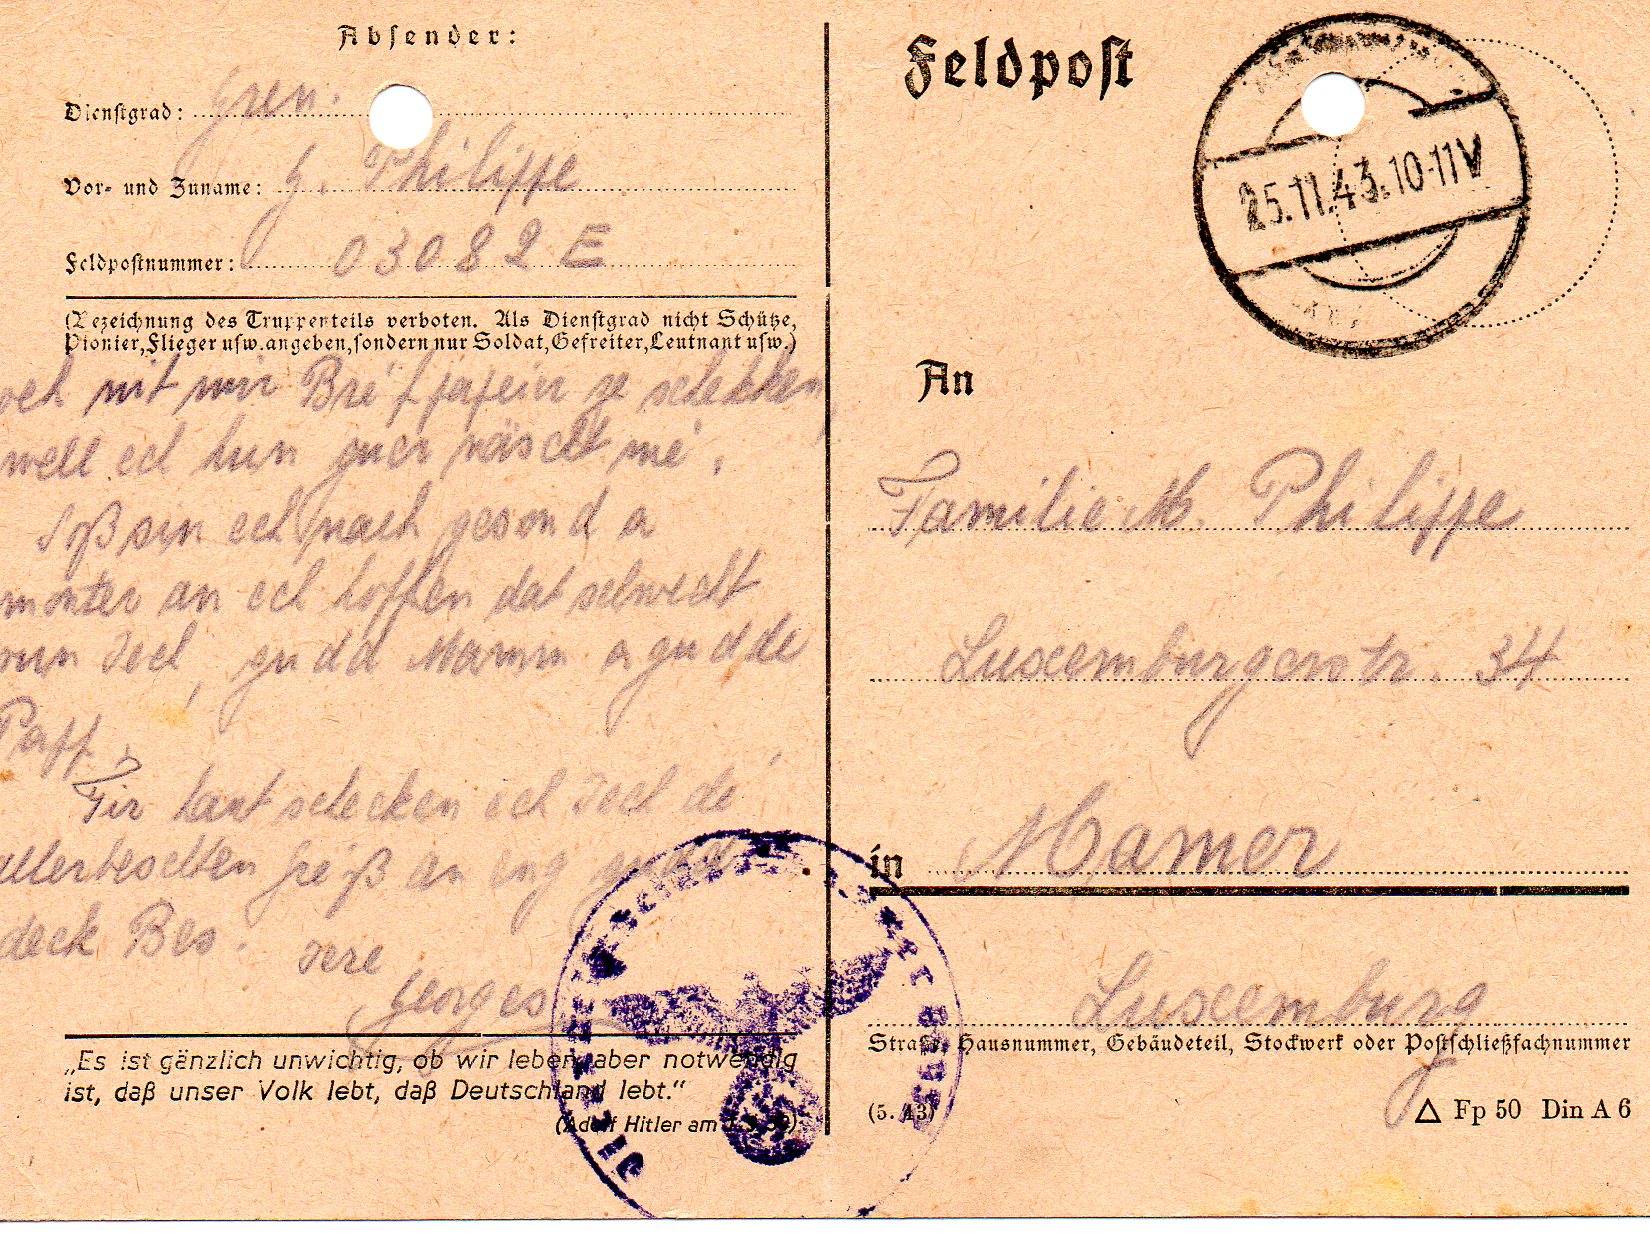 Absender:
Dienstgrad: Gren.
Vor- und Zuname: G. Philippe
Feldpostnummer: 03082 E
(Bezeichnung des Truppenteils verboten. Als Dienstgrad nicht Schütze,
Pionier, Flieger usw. angeben, sondern nur Soldat, Gefreiter, Leutnant usw.)
mir Bréf ze schecken
well ech hun guer näischt mé.
Soß sin ech nach gesond a
monter an ech hoffen dat selwecht
vun Iech, gudd Mamm a gudde
Papp.
Fir haut schecken ech Iech dé
allerbeschten Gréiß an eng gudd
deck Bes. Iere
Georges
„Es ist gänzlich unwichtig, ob wir leben, aber notwendig
ist, daß unser Volk lebt, daß Deutschland lebt.“
(Adolf Hitler am
Feldpost
25.11.43.10-11V
An
Familie M. Philippe
Luxemburgerstr. 34
in Mamer
Luxemburg
Straße, Hausnummer, Gebäudeteil, Stockwerk oder Postschließfachnummer
(5. 43)
△ Fp 50 Din A 6